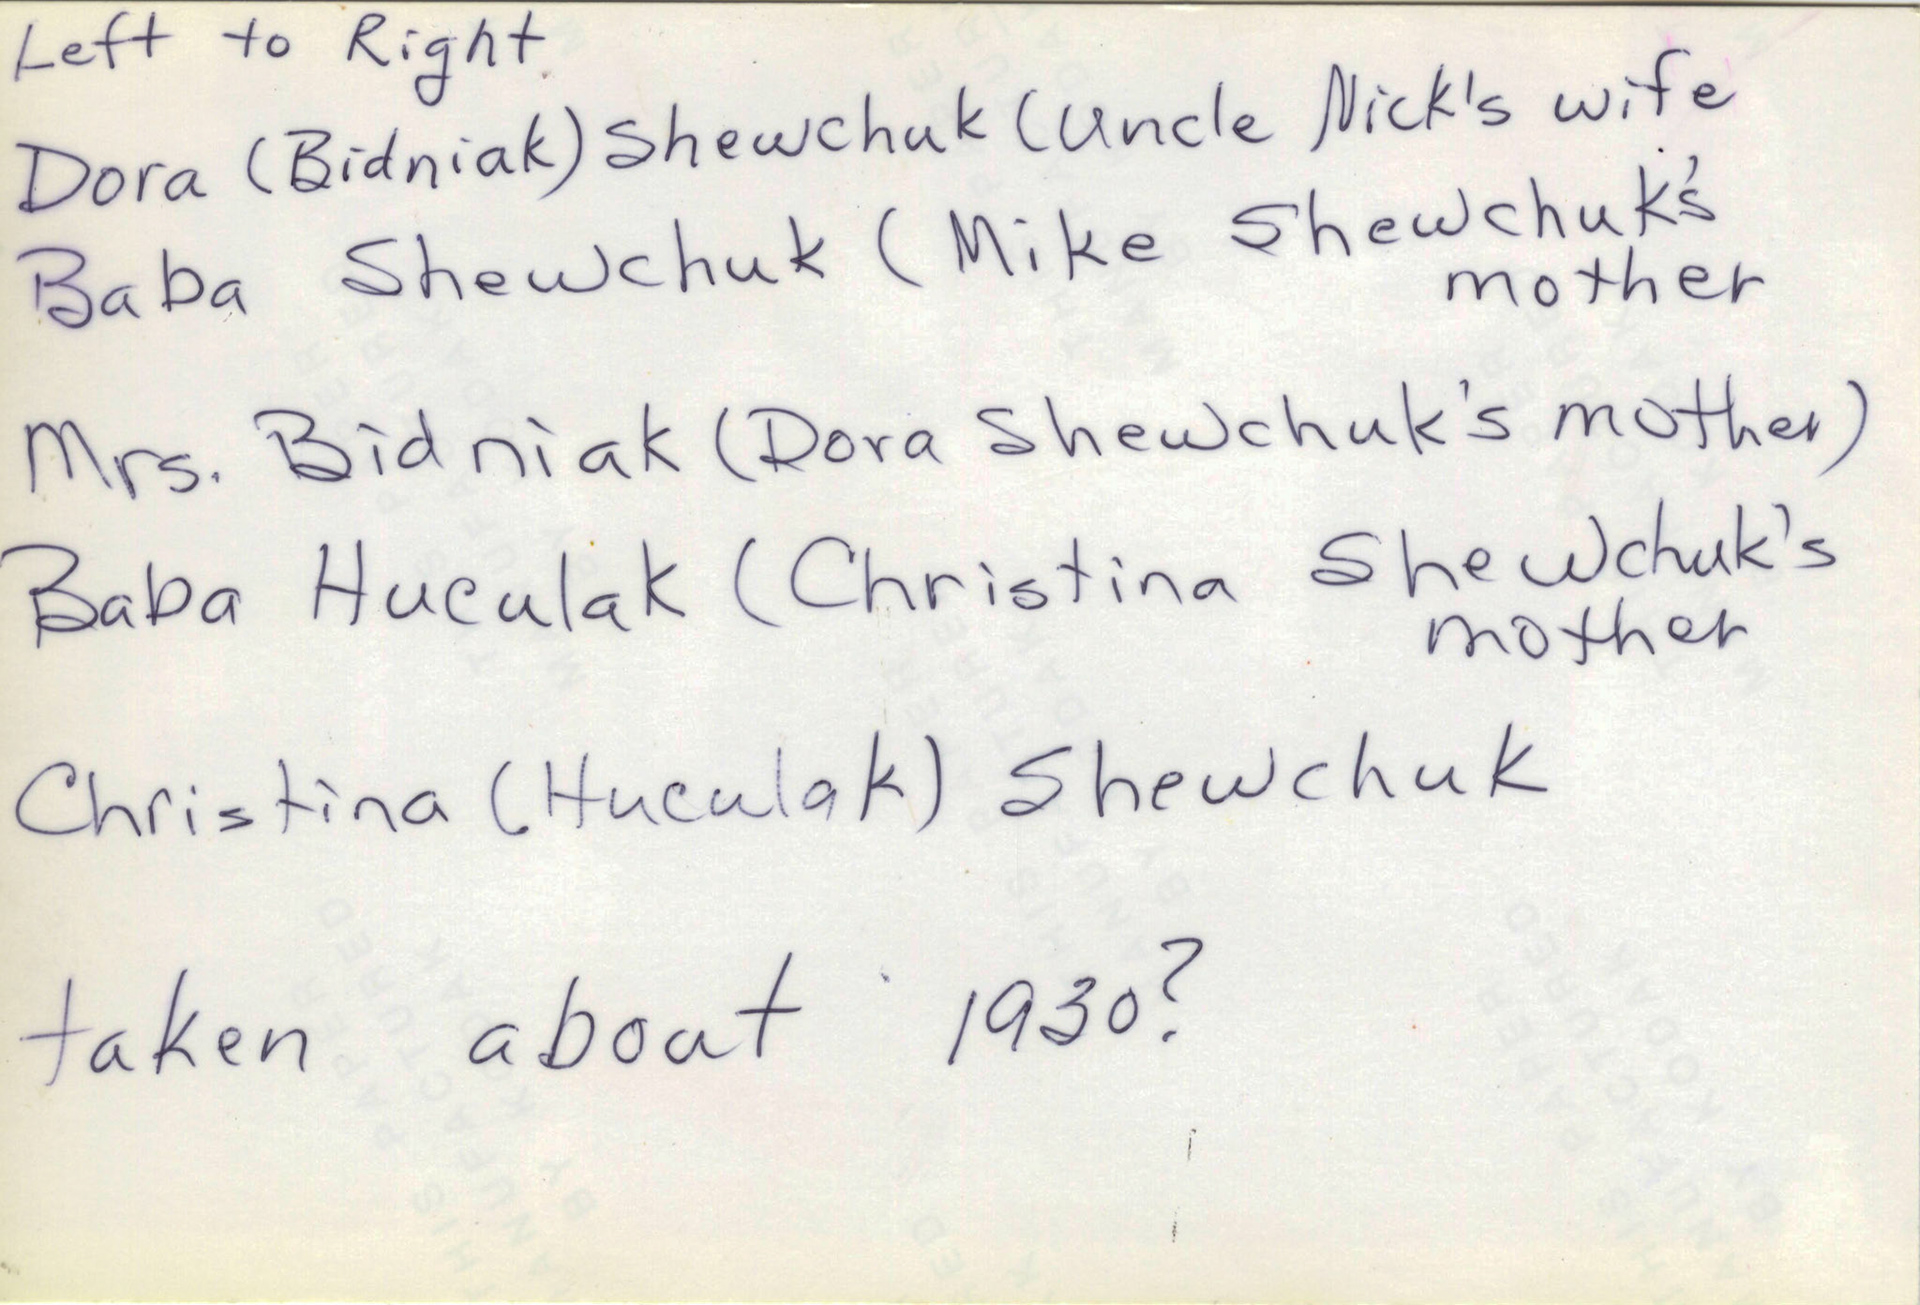 Left to Right
Dora (Bidniak) Shewchuk (Uncle Nick's wife
Baba Shewchuk (Mike Shewchuk's
mother
Mrs. Bidniak (Dora Shewchuk's mother)
Baba Huculak (Christina Shewchuk's
mother
Christina (Huculak) Shewchuk
taken about 1930?